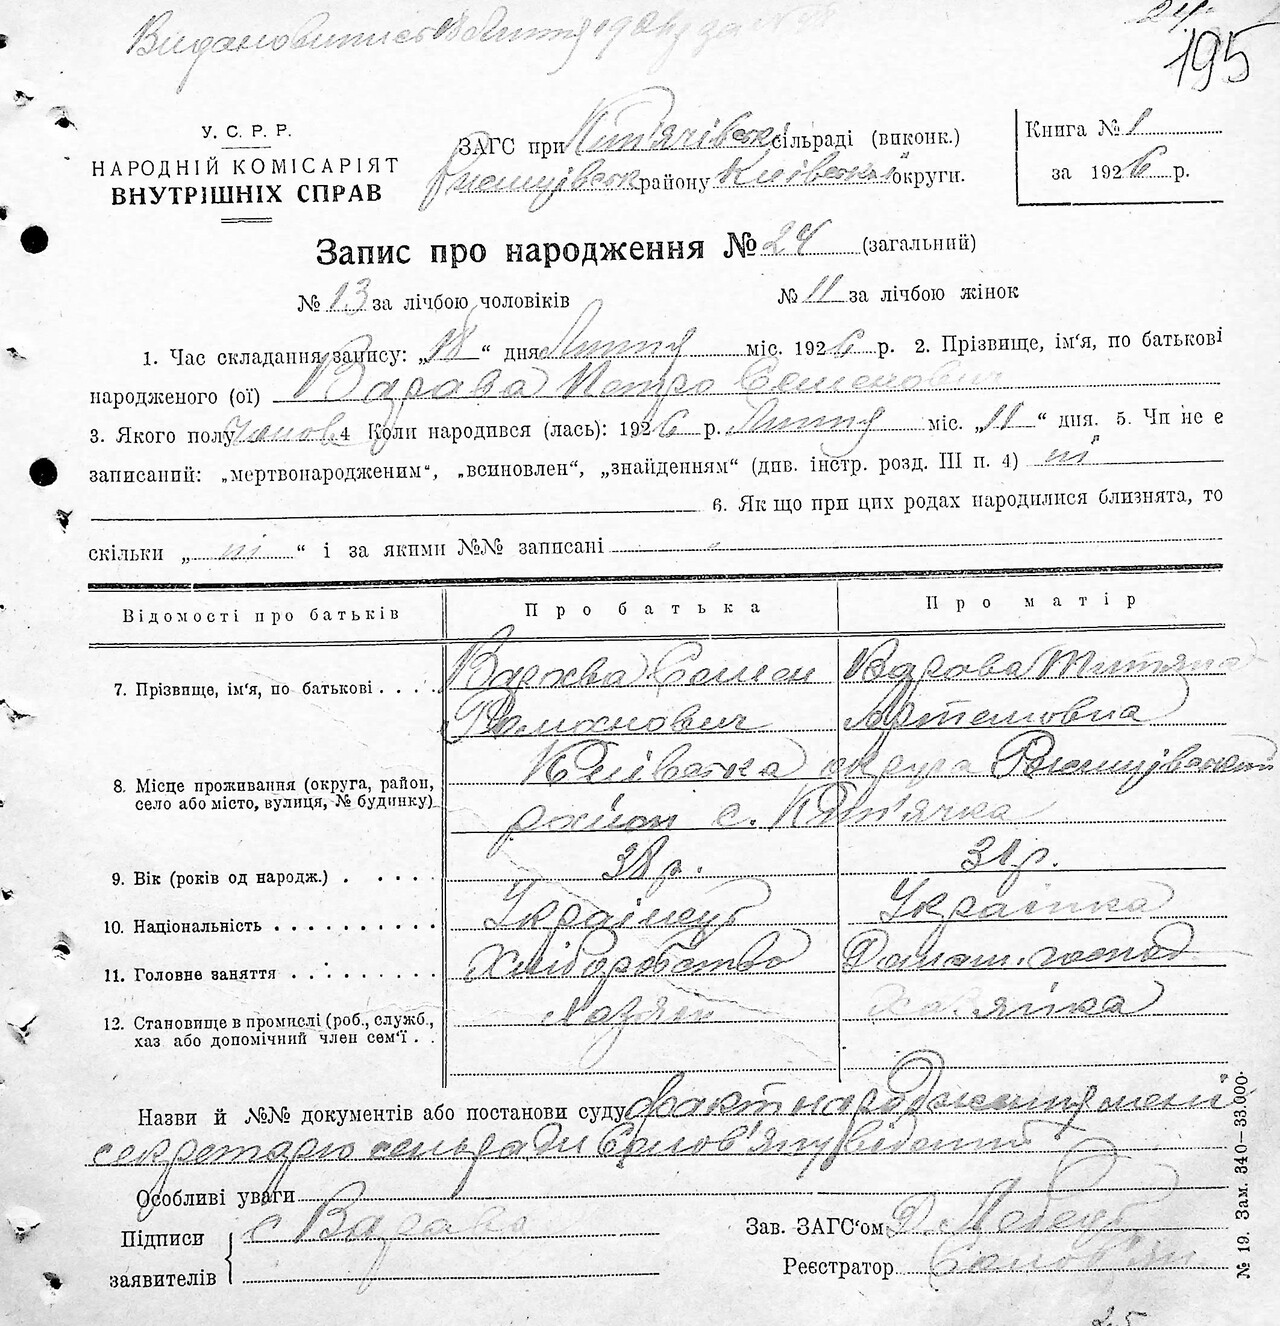 24
195
У. С. Р. Р.
НАРОДНІЙ КОМІСАРІЯТ
ВНУТРІШНІХ СПРАВ
ЗАГС при сільраді (виконк.)
району Київської округи.
Книга № 1
за 1926 р.
Запис про народження № 24 (загальний)
№ 13 за лічбою чоловіків № 11 за лічбою жінок
1. Час складання запису: „18“ дня Липня міс. 1926 р. 2. Прізвище, ім'я, по батькові
народженого (ої) Варава Петро Семенович
3. Якого полу чолов. 4 Коли народився (лась): 1926 р. Липня міс. „11“ дня. 5. Чи не є
записаний: „мертвонародженим“, „всиновлен“, „знайденням“ (див. інстр. розд. III п. 4) ні
6. Як що при цих родах народилися близнята, то
скільки „ ні “ і за якими №№ записані „
Відомості про батьків Про батька Про матір
7. Прізвище, ім'я, по батькові . . . . Варава Семен Варава Титяна
Романович Артемовна
8. Місце проживання (округа, район, село або місто, вулиця, № будинку) Київська округа
район с.
9. Вік (років од народж.) . . . . . 38 р. 31 р.
10. Національність . . . . . . . . . . Українець Українка
11. Головне заняття . . . . . . . . . Хліборобство Домаш. господ
12. Становище в промислі (роб., служб.,
хаз або допомічний член сем'ї . . Хазяїн Хазяйка
Назви й №№ документів або постанови суду факт народження мені
секретарю сельради Солов'яну відомий
Особливі уваги
Підписи заявителів С Варава
Зав. ЗАГС'ом
Реєстратор Солов'ян
№ 19. Зам. 340—33.000.
25